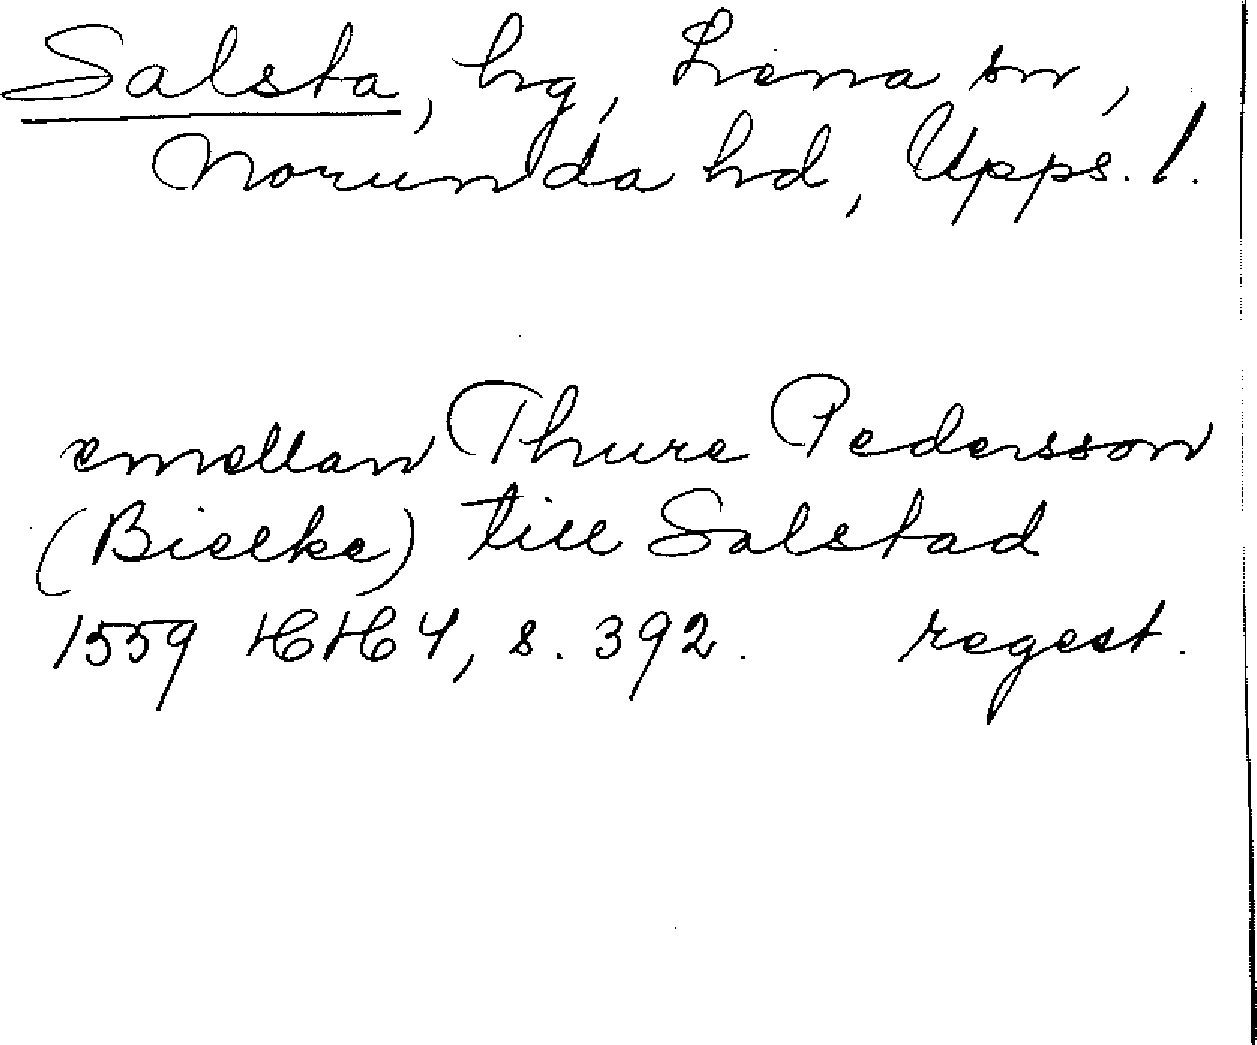 Salsta, hg, Lena sn,
Norunda hd, Upps. l.
emellan Thure Pedersson
(Bielke) till Salstad
1559 HH 4, s. 392. regest.